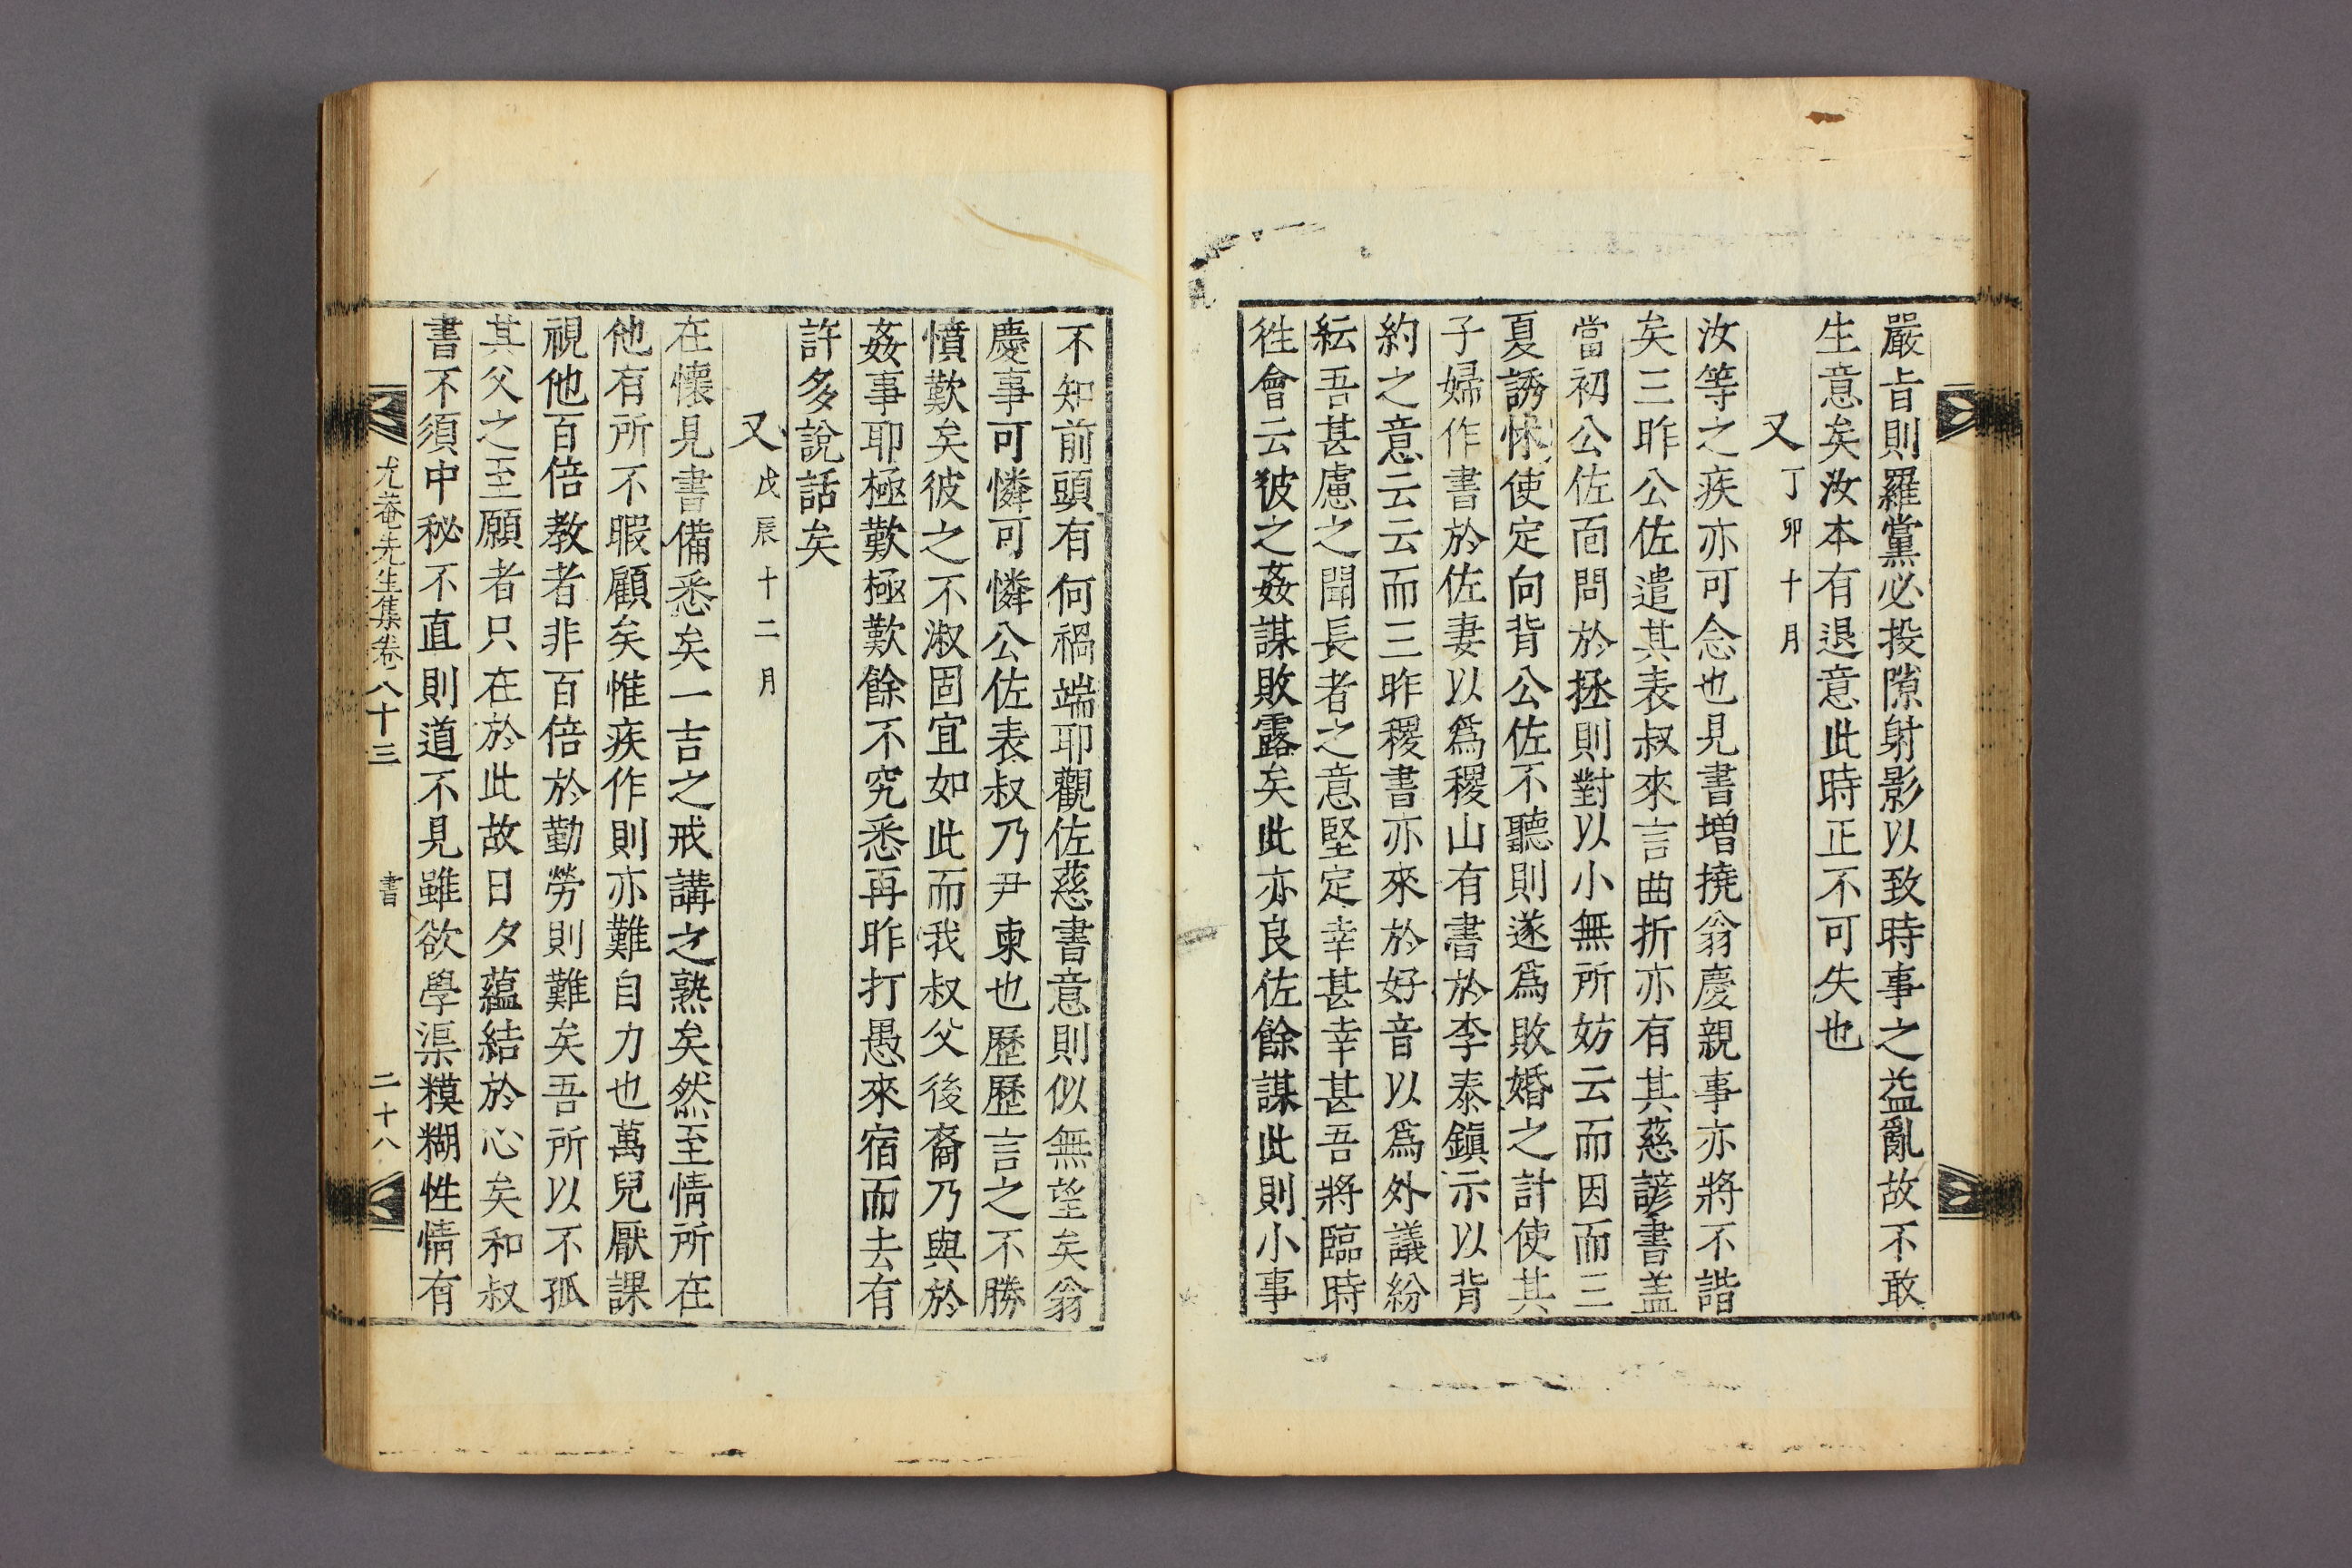 嚴旨則羅黨必投隙射影以致時事之益亂故不敢
生意矣汝本有退意此時正不可失也
又丁卯十月
汝等之疾亦可念也見書增撓翁慶親事亦將不諧
矣三昨公佐遣其表叔來言曲折亦有其慈諺書盖
當初公佐面問於拯則對以小無所妨云而因而三
夏誘怵使定向背公佐不聽則遂爲敗婚之計使其
子婦作書於佐妻以爲稷山有書於李泰鎭示以背
約之意云云而三昨稷書亦來於好音以爲外議紛
紜吾甚慮之聞長者之意堅定幸甚幸甚吾將臨時
徃會云彼之姦謀敗露矣此亦良佐餘謀此則小事
不知前頭有何禍端耶觀佐慈書意則似無望矣翁
慶事可憐可憐公佐表叔乃尹東也歷歷言之不勝
憤歎矣彼之不淑固宜如此而我叔父後裔乃與於
姦事耶極歎極歎餘不究悉再昨打愚來宿而去有
許多說話矣
又戊辰十二月
在懷見書備悉矣一吉之戒講之熟矣然至情所在
他有所不暇顧矣惟疾作則亦難自力也萬兒厭課
視他百倍教者非百倍於勤勞則難矣吾所以不孤
其父之至願者只在於此故日夕蘊結於心矣和叔
書不須中秘不直則道不見雖欲學渠糢糊性情有
尤菴先生集卷八十三 書 二十八